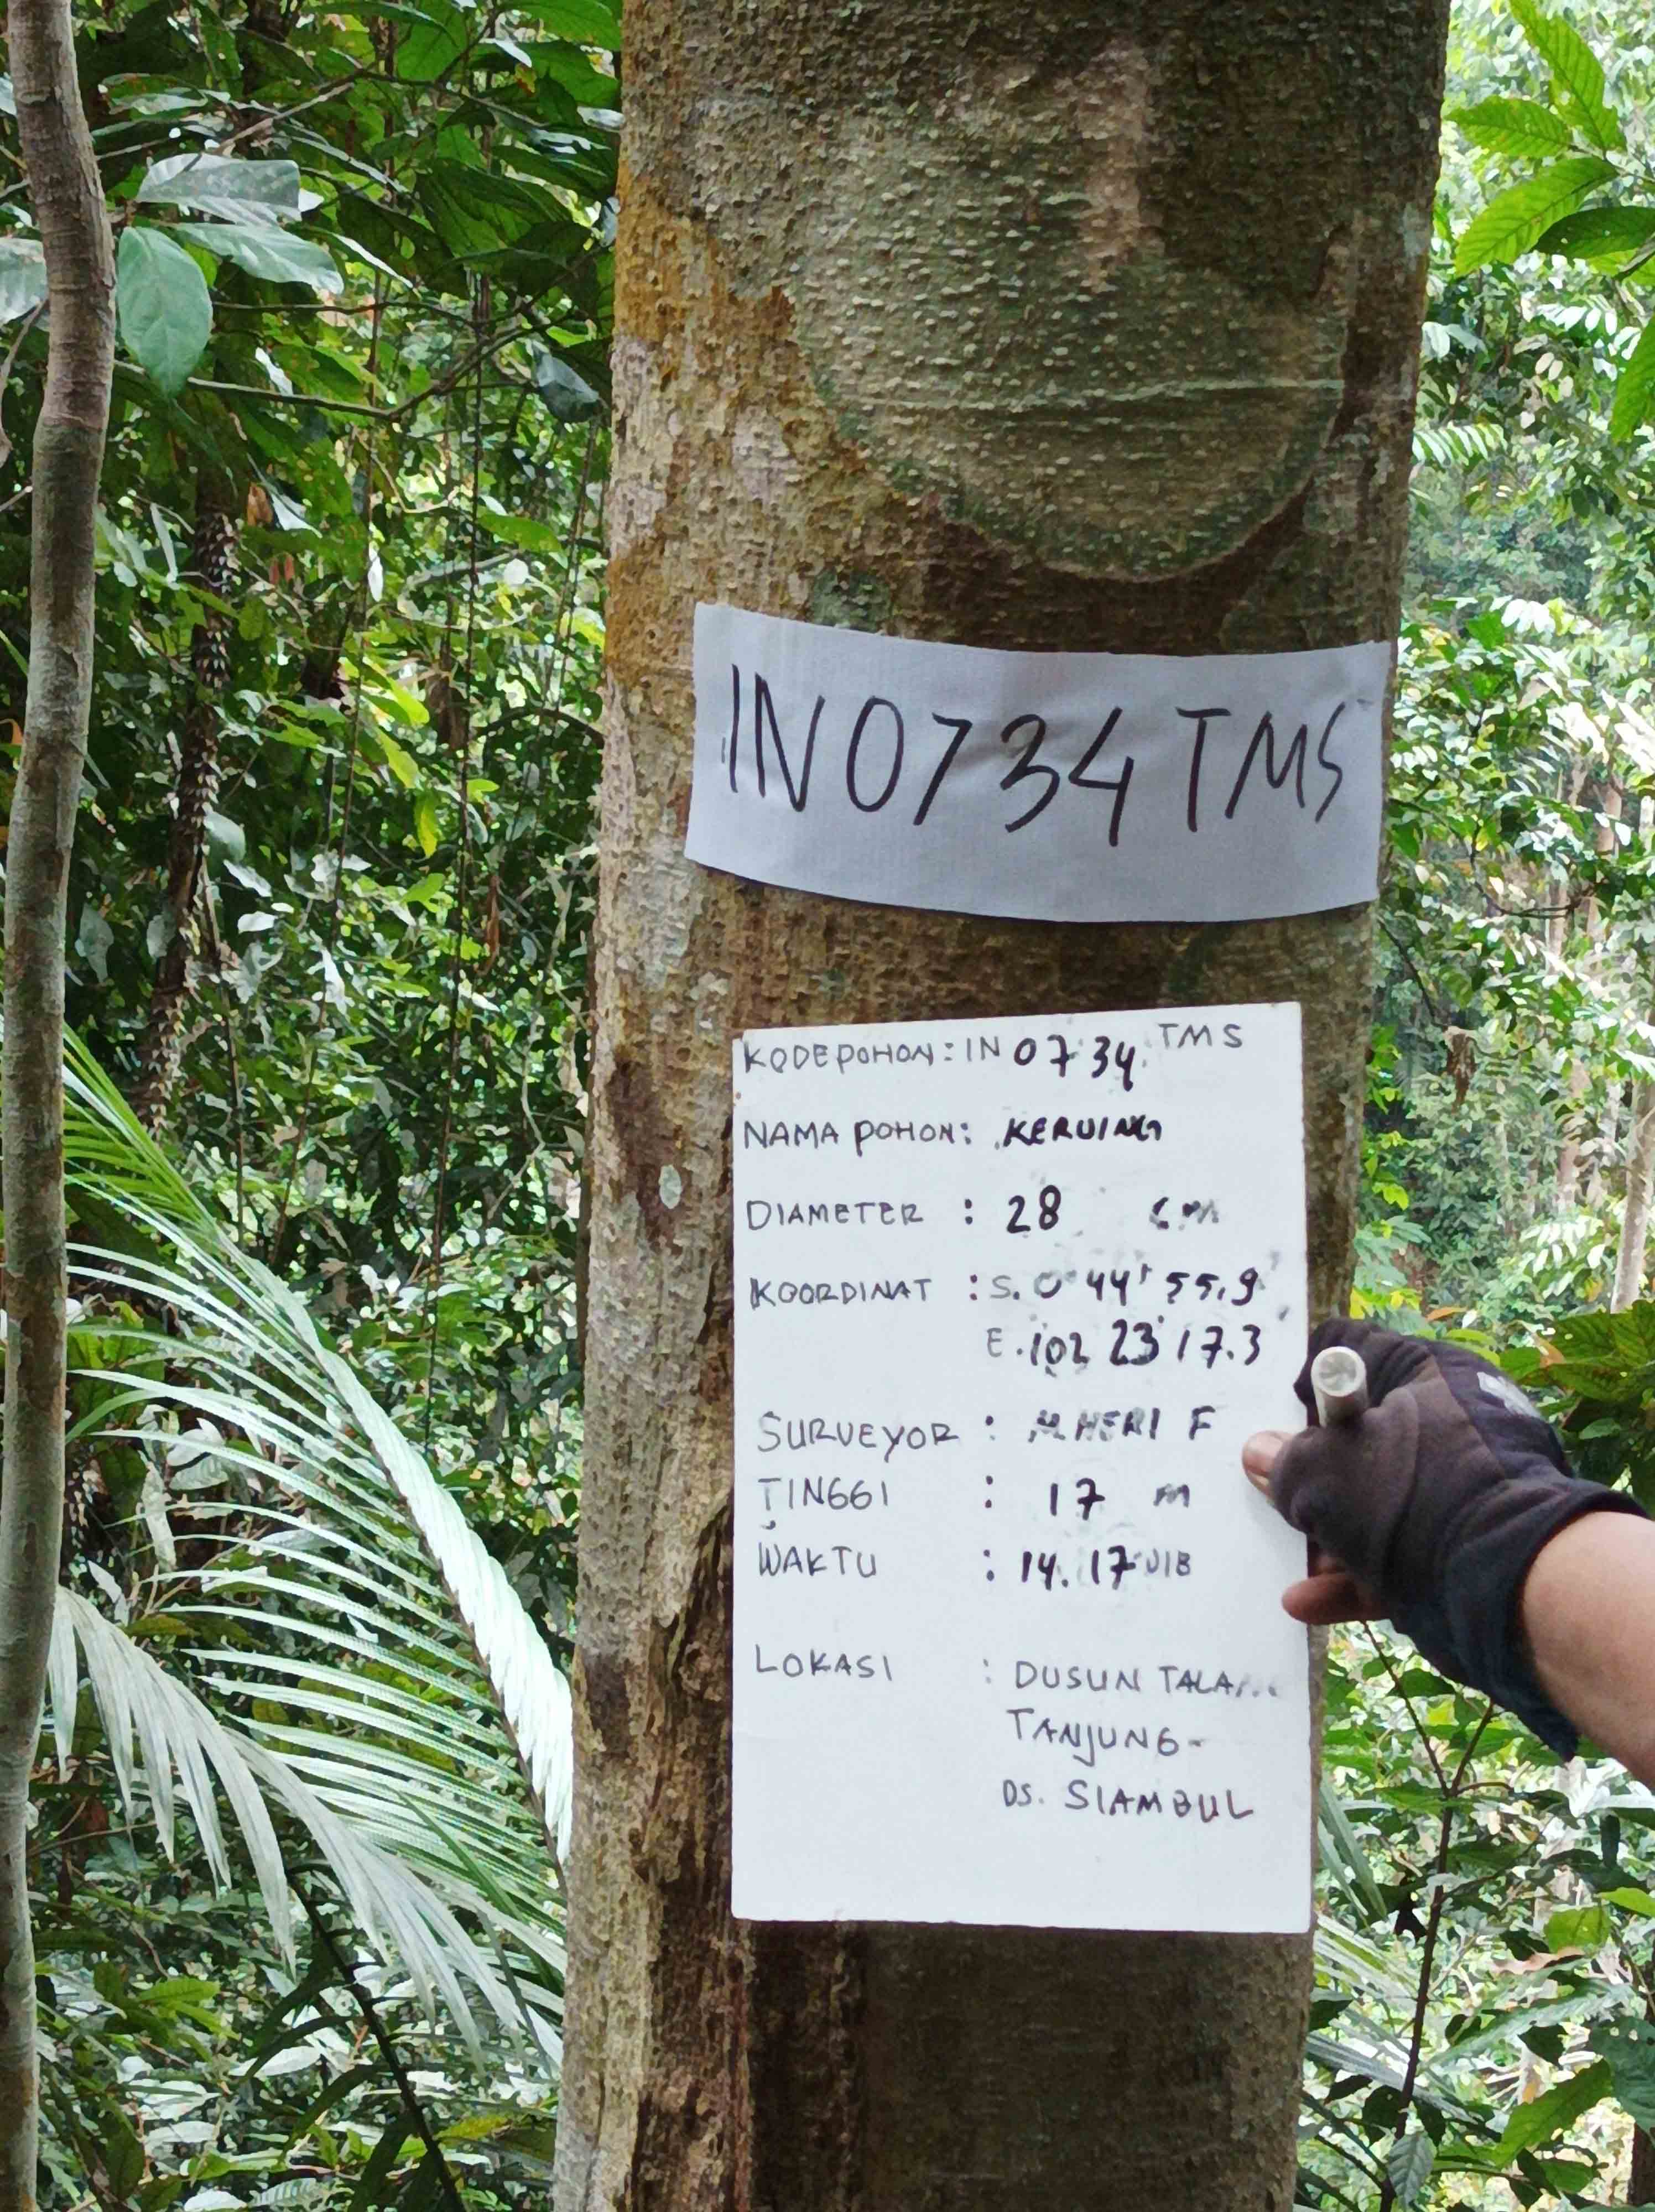 IN0734 TMS
KODE POHON : IN 0734 TMS
NAMA POHON : KERUING
DIAMETER : 28 cm
KOORDINAT : S. 0° 44' 55,9"
E. 102 23' 17.3
SURVEYOR : M HERI F
TINGGI : 17 m
WAKTU : 14.17 WIB
LOKASI : DUSUN
TANJUNG-
DS. SIAMBUL